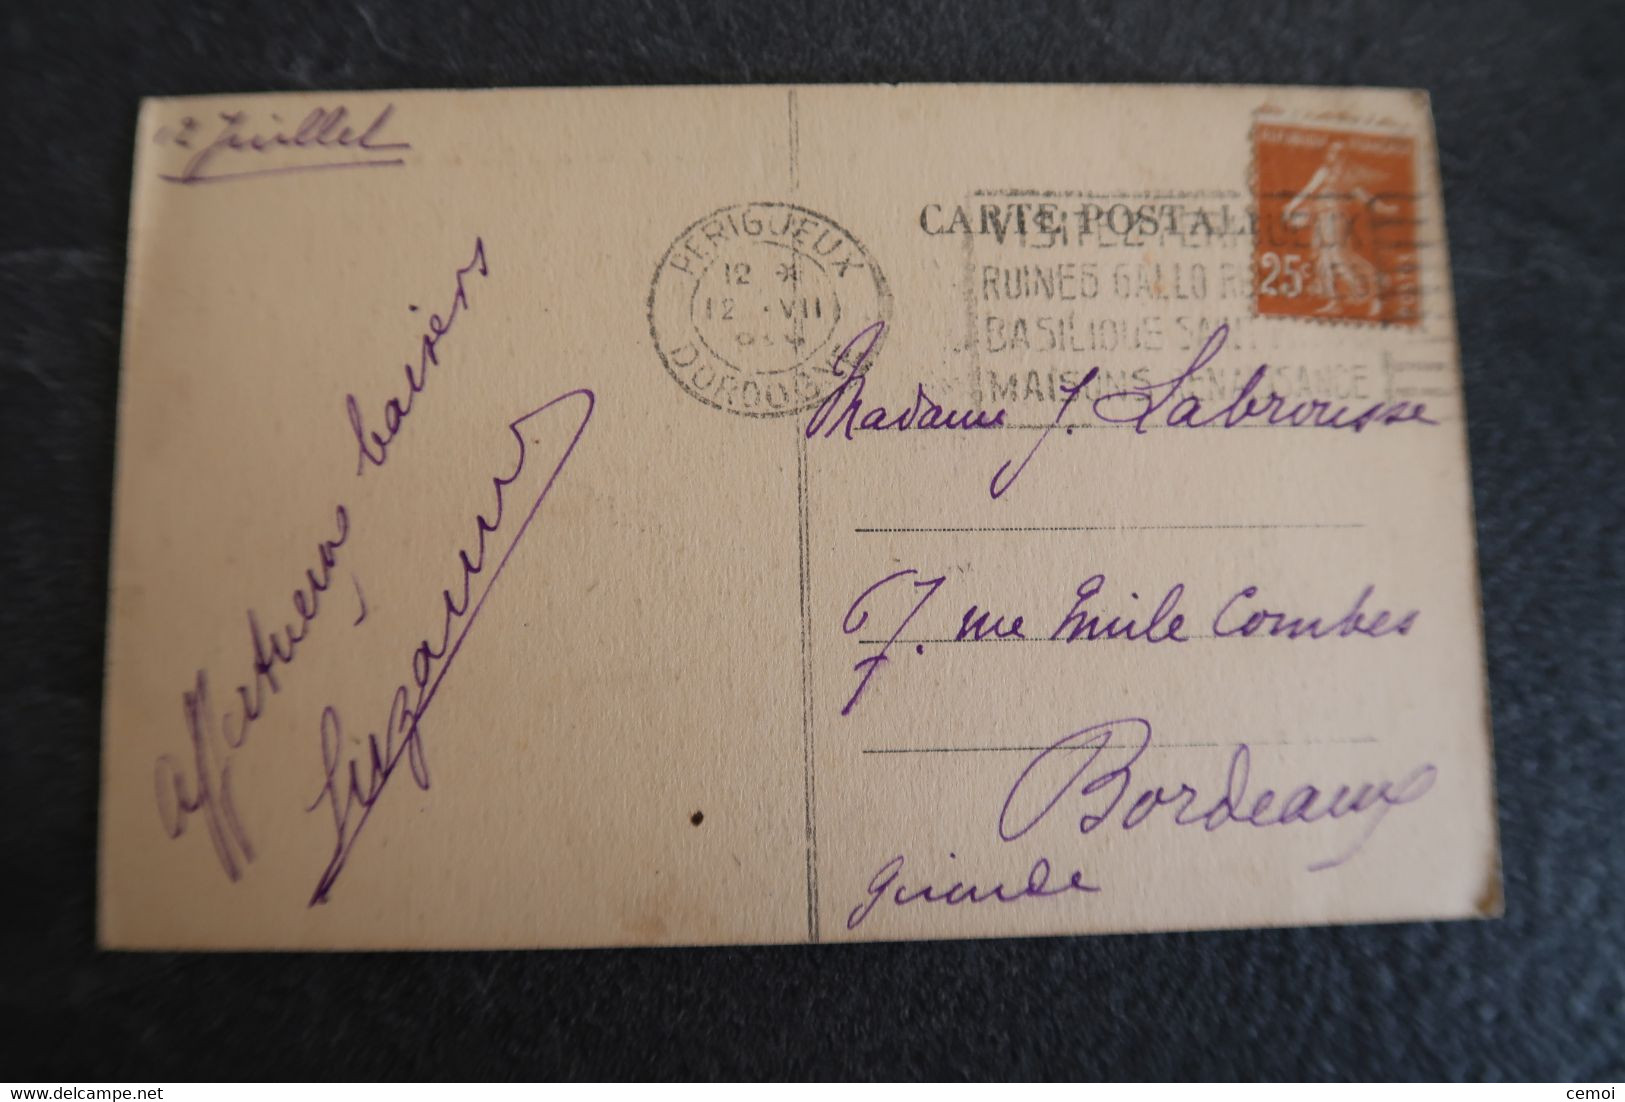 12 Juillet
affectueux baisers
Suzanne
CARTE POSTALE
PERIGUEUX
12 *
12 VII
DORDOGNE
VISITEZ PERIGUEUX
RUINES GALLO
BASILIQUE SAINT
MAISONS RENAISSANCE
25c
Madame J. Labrousse
67. rue Emile Combes
Bordeaux
Gironde
www.delcampe.net
cemoi